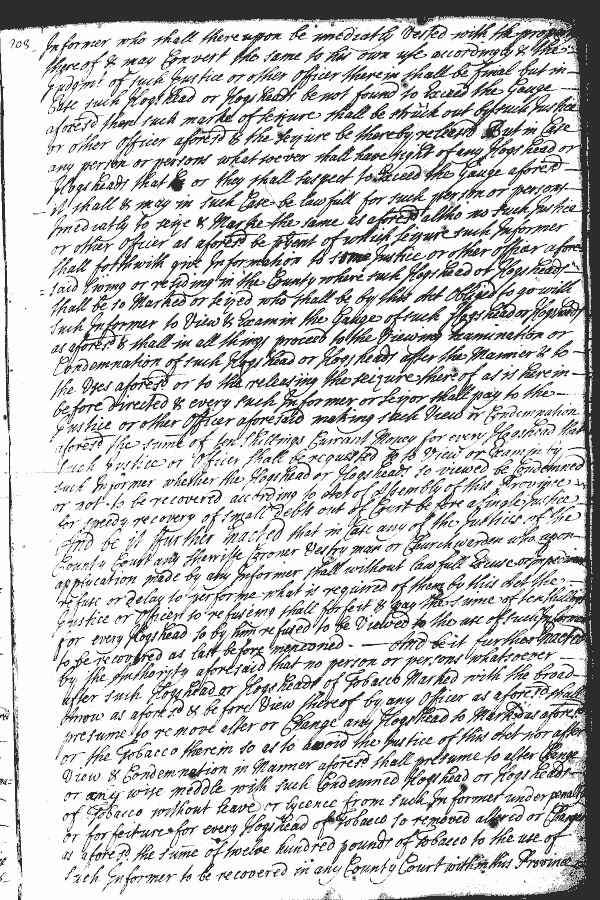 208
Informer who shall thereupon be imediatly Vested with the property
thereof & may Convert the same to his own use accordingly & the
Judgmt of such Justice or other Officer therein shall be final but in
Case such Hogshead or Hogsheads be not found to Exceed the Gauge
aforesd then such marke of seizure shall be struck out by such Justice
or other Officer aforesd & the seizure be thereby released But in Case
any person or persons whatsoever shall have sight of any Hogshead or
Hogsheads that he or they shall suspect to Exceed the Gauge aforesd
it shall & may in such Case be lawfull for such person or persons
Imediatly to seize & Marke the same as aforesd altho no such Justice
or other Officer as aforesd be psent of which seizure such Informer
shall forthwith give Information to some Justice or other Officer afore
said living or residing in the County where such Hogshead or Hogsheads
shall be so Marked or seized who shall be by this Act Obliged to go with
such Informer to View & Examin the Gauge of such Hogshead or Hogsheads
as aforesd & shall in all things proceed to the Viewing Examination or
Condemnation of such Hogshead or Hogsheads after the Manner & to
the Uses aforesd or to the releasing the seizure thereof as is herein
before directed & every such Informer or seizor shall pay to the
Justice or other Officer aforesaid making such View or Condemnation
aforesd the sume of ten shillings Currant Money for every Hogshead that
such Justice or Officer shall be requested to View or Examin by
such Informer whether the Hogshead or Hogsheads so viewed be Condemned
or not to be recovered according to Act of Assembly of this Province
for speedy recovery of small Debts out of Court before a single Justice
And be it further Enacted that in Case any of the Justices of the
County Court any Sherriffe Coroner Vestry man or Churchwarden who upon
application made by any Informer shall without lawfull Excuse or impediment
refuse or Delay to performe what is required of them by this Act the
Justice or Officer so refuseing shall forfeit & pay the sume of ten shillings
for every Hogshead so by him refused to be Viewed to the use of such Informer
to be recovered as last before menconed And be it further Enacted
by the Authority aforesaid that no person or persons whatsoever
after such Hogshead or Hogsheads of Tobacco Marked with the broad
Arrow as aforesd & before View thereof by any Officer as aforesd shall
presume to remove alter or Change any Hogshead so Marked as aforesd
or the Tobacco therein so as to avoid the Justice of this Act nor after
View & Condemnation in Manner aforesd shall presume to alter Change
or any wise meddle with such Condemned Hogshead or Hogsheads
of Tobacco without leave or lycence from such Informer under penalty
or forfeiture for every Hogshead of Tobacco so removed altered or Changed
as aforesd the sume of twelve hundred pounds of Tobacco to the use of
such Informer to be recovered in any County Court within this Province